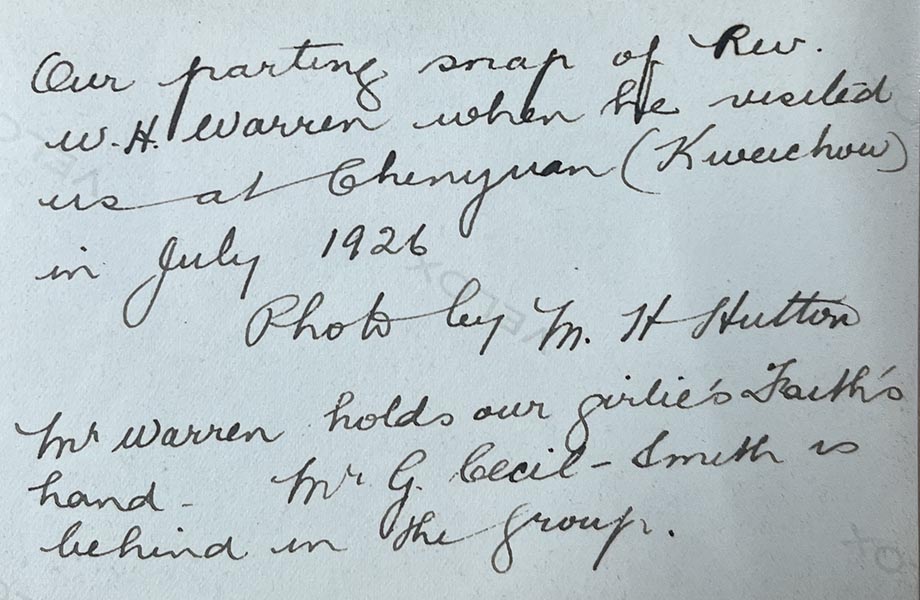 Our parting snap of Rev.
W. H. Warren when he visited
us at Chenyuan (Kweichow)
in July 1926
Photo by M. H Hutton
Mr Warren holds our girlie's Faith's
hand - Mr G. Cecil-Smith is
behind in the group.